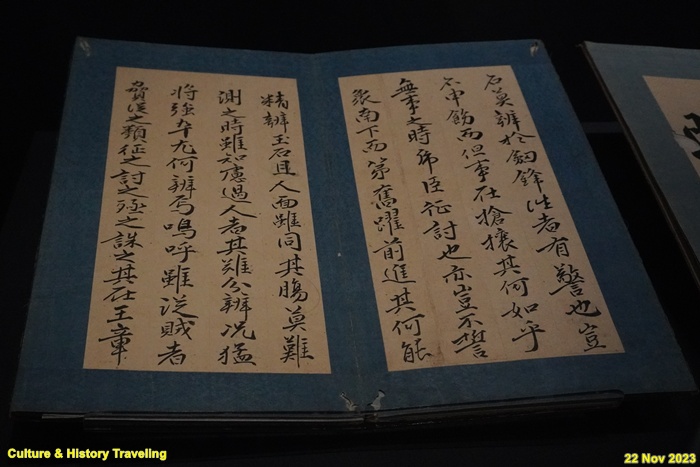 石莫辨於釼鋒徃者有警也豈
不申飭而但事在搶攘其何如乎
無事之時帝臣征討也亦豈不誓
衆南下西第奮躍前進其何能
精辨玉石且人面雖同其腸莫難
測之時雖知慮過人者其難分辨况猛
將強卒尤何辨焉嗚呼雖從賊者
脅從之類征之討之殛之誅之其在王章
Culture & History Traveling
22 Nov 2023